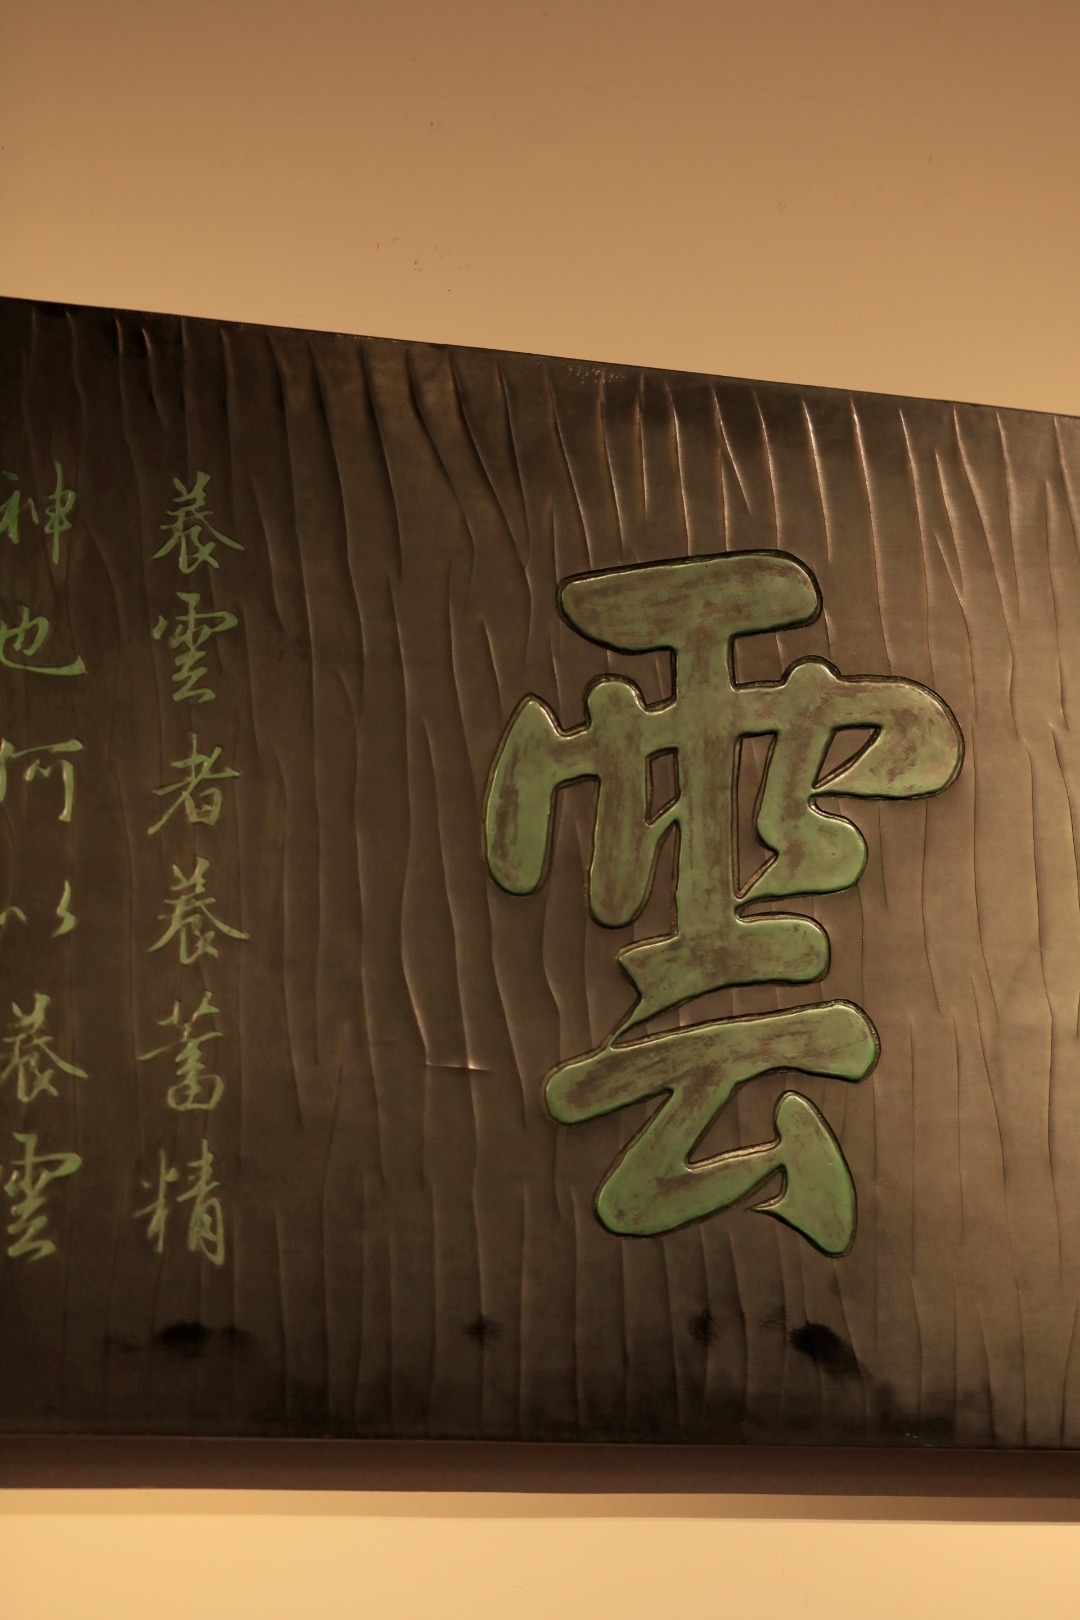 雲
養雲者養蓄精
神也何以養雲